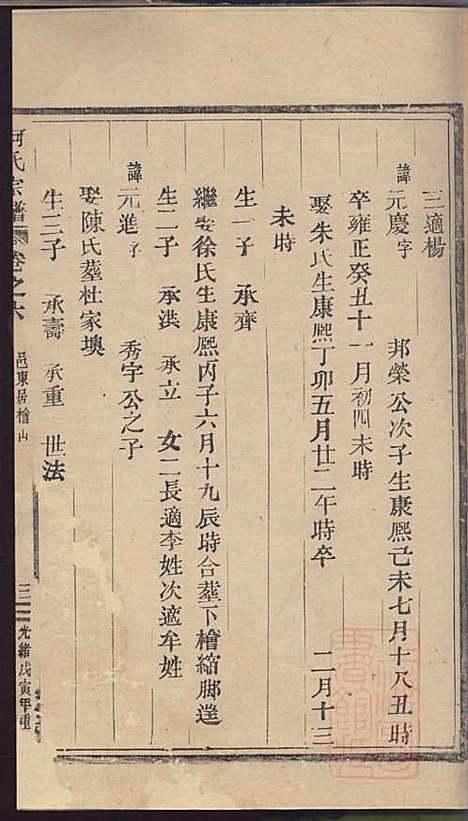 三適楊
諱元慶字 邦榮公次子生康熙己未七月十八丑時
卒雍正癸丑十一月初四未時
娶朱氏生康熙丁卯五月廿二午時卒 二月十三
未時
生一子 承齊
繼娶徐氏生康熙丙子六月十九辰時合葬下檜縮脚塋
生二子 承洪 承立 女二長適李姓次適牟姓
諱元進字 秀宇公之子
娶陳氏葬杜家墺
生三子 承壽 承重 世法
何氏宗譜 卷之六 邑東居檜山 三 光緒戊寅年重